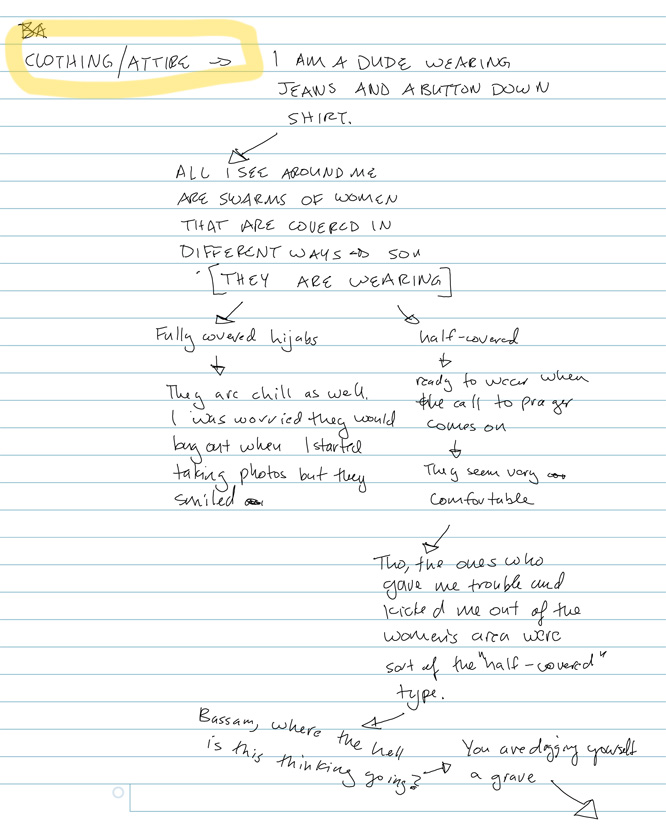 BA
CLOTHING/ATTIRE → I AM A DUDE WEARING
JEANS AND A BUTTON DOWN
SHIRT.
ALL I SEE AROUND ME
ARE SWARMS OF WOMEN
THAT ARE COVERED IN
DIFFERENT WAYS → SOM
[THEY ARE WEARING]
Fully covered hijabs
They are chill as well.
I was worried they would
bug out when I started
taking photos but they
smiled
half-covered
ready to wear when
the call to prayer
comes on
They seem very
comfortable
Tho, the ones who
gave me trouble and
kicked me out of the
women's area were
sort of the "half-covered"
type.
Bassam, where the hell
is this thinking going? →
You are digging yourself
a grave